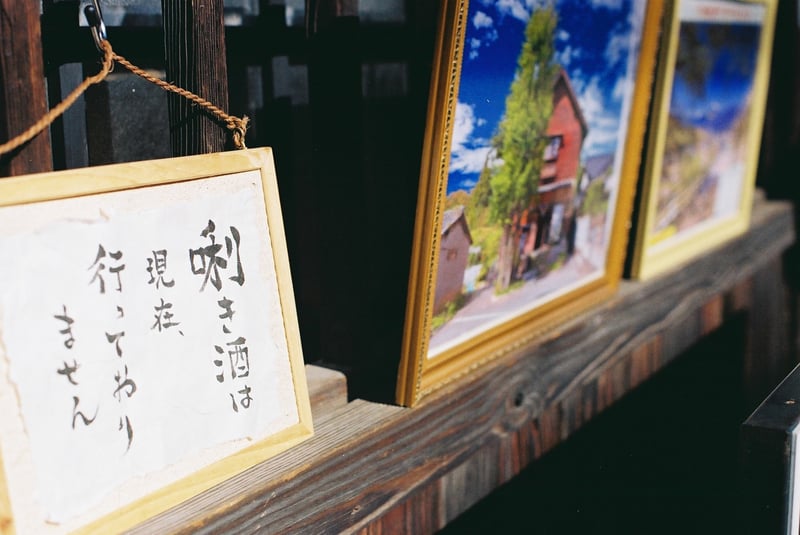 唎き酒は
現在、
行っており
ません